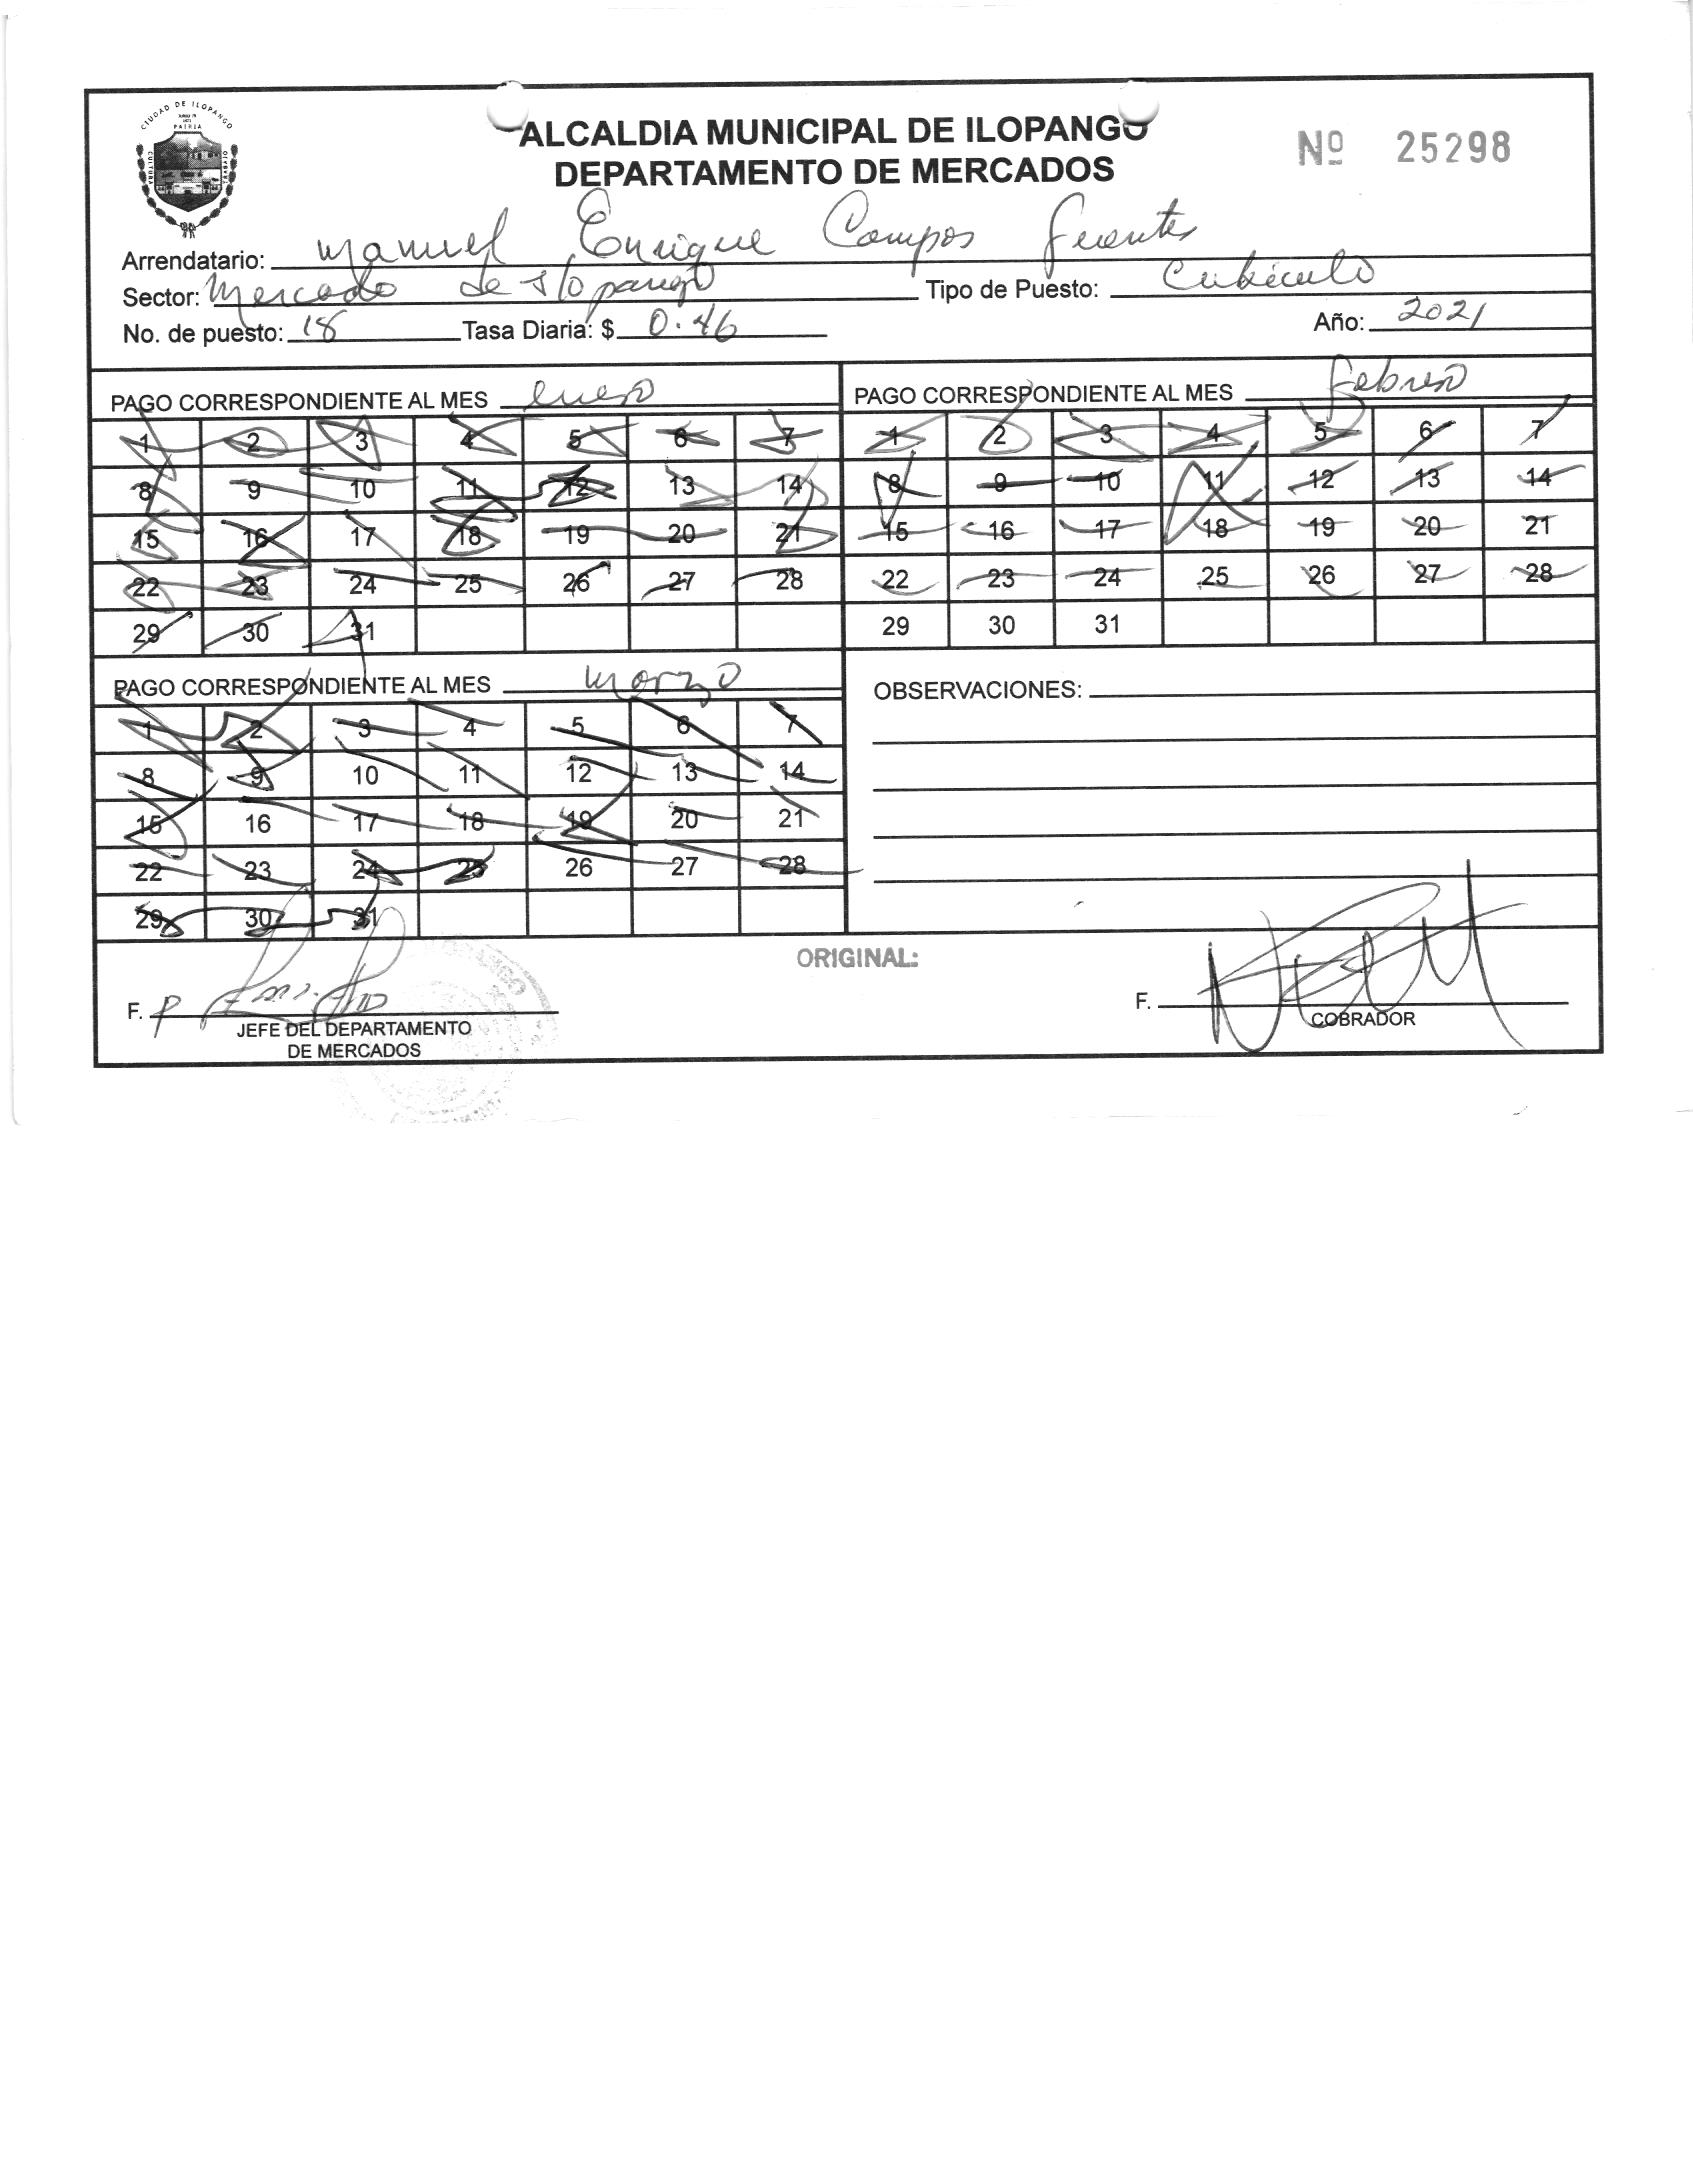 CIUDAD DE ILOPANGO
PATRIA
CULTURA
ALCALDIA MUNICIPAL DE ILOPANGO
DEPARTAMENTO DE MERCADOS
Nº 25298
Arrendatario: Manuel Enrique Campos Fuentes
Sector: Mercado de Ilopango Tipo de Puesto: Cubículo
No. de puesto: 18 Tasa Diaria: $ 0.46 Año: 2021
PAGO CORRESPONDIENTE AL MES enero
1 2 3 4 5 6 7
8 9 10 11 12 13 14
15 16 17 18 19 20 21
22 23 24 25 26 27 28
29 30 31
PAGO CORRESPONDIENTE AL MES febrero
1 2 3 4 5 6 7
8 9 10 11 12 13 14
15 16 17 18 19 20 21
22 23 24 25 26 27 28
29 30 31
PAGO CORRESPONDIENTE AL MES marzo
1 2 3 4 5 6 7
8 9 10 11 12 13 14
15 16 17 18 19 20 21
22 23 24 25 26 27 28
29 30 31
OBSERVACIONES:
ORIGINAL:
F. P
JEFE DEL DEPARTAMENTO
DE MERCADOS
F.
COBRADOR